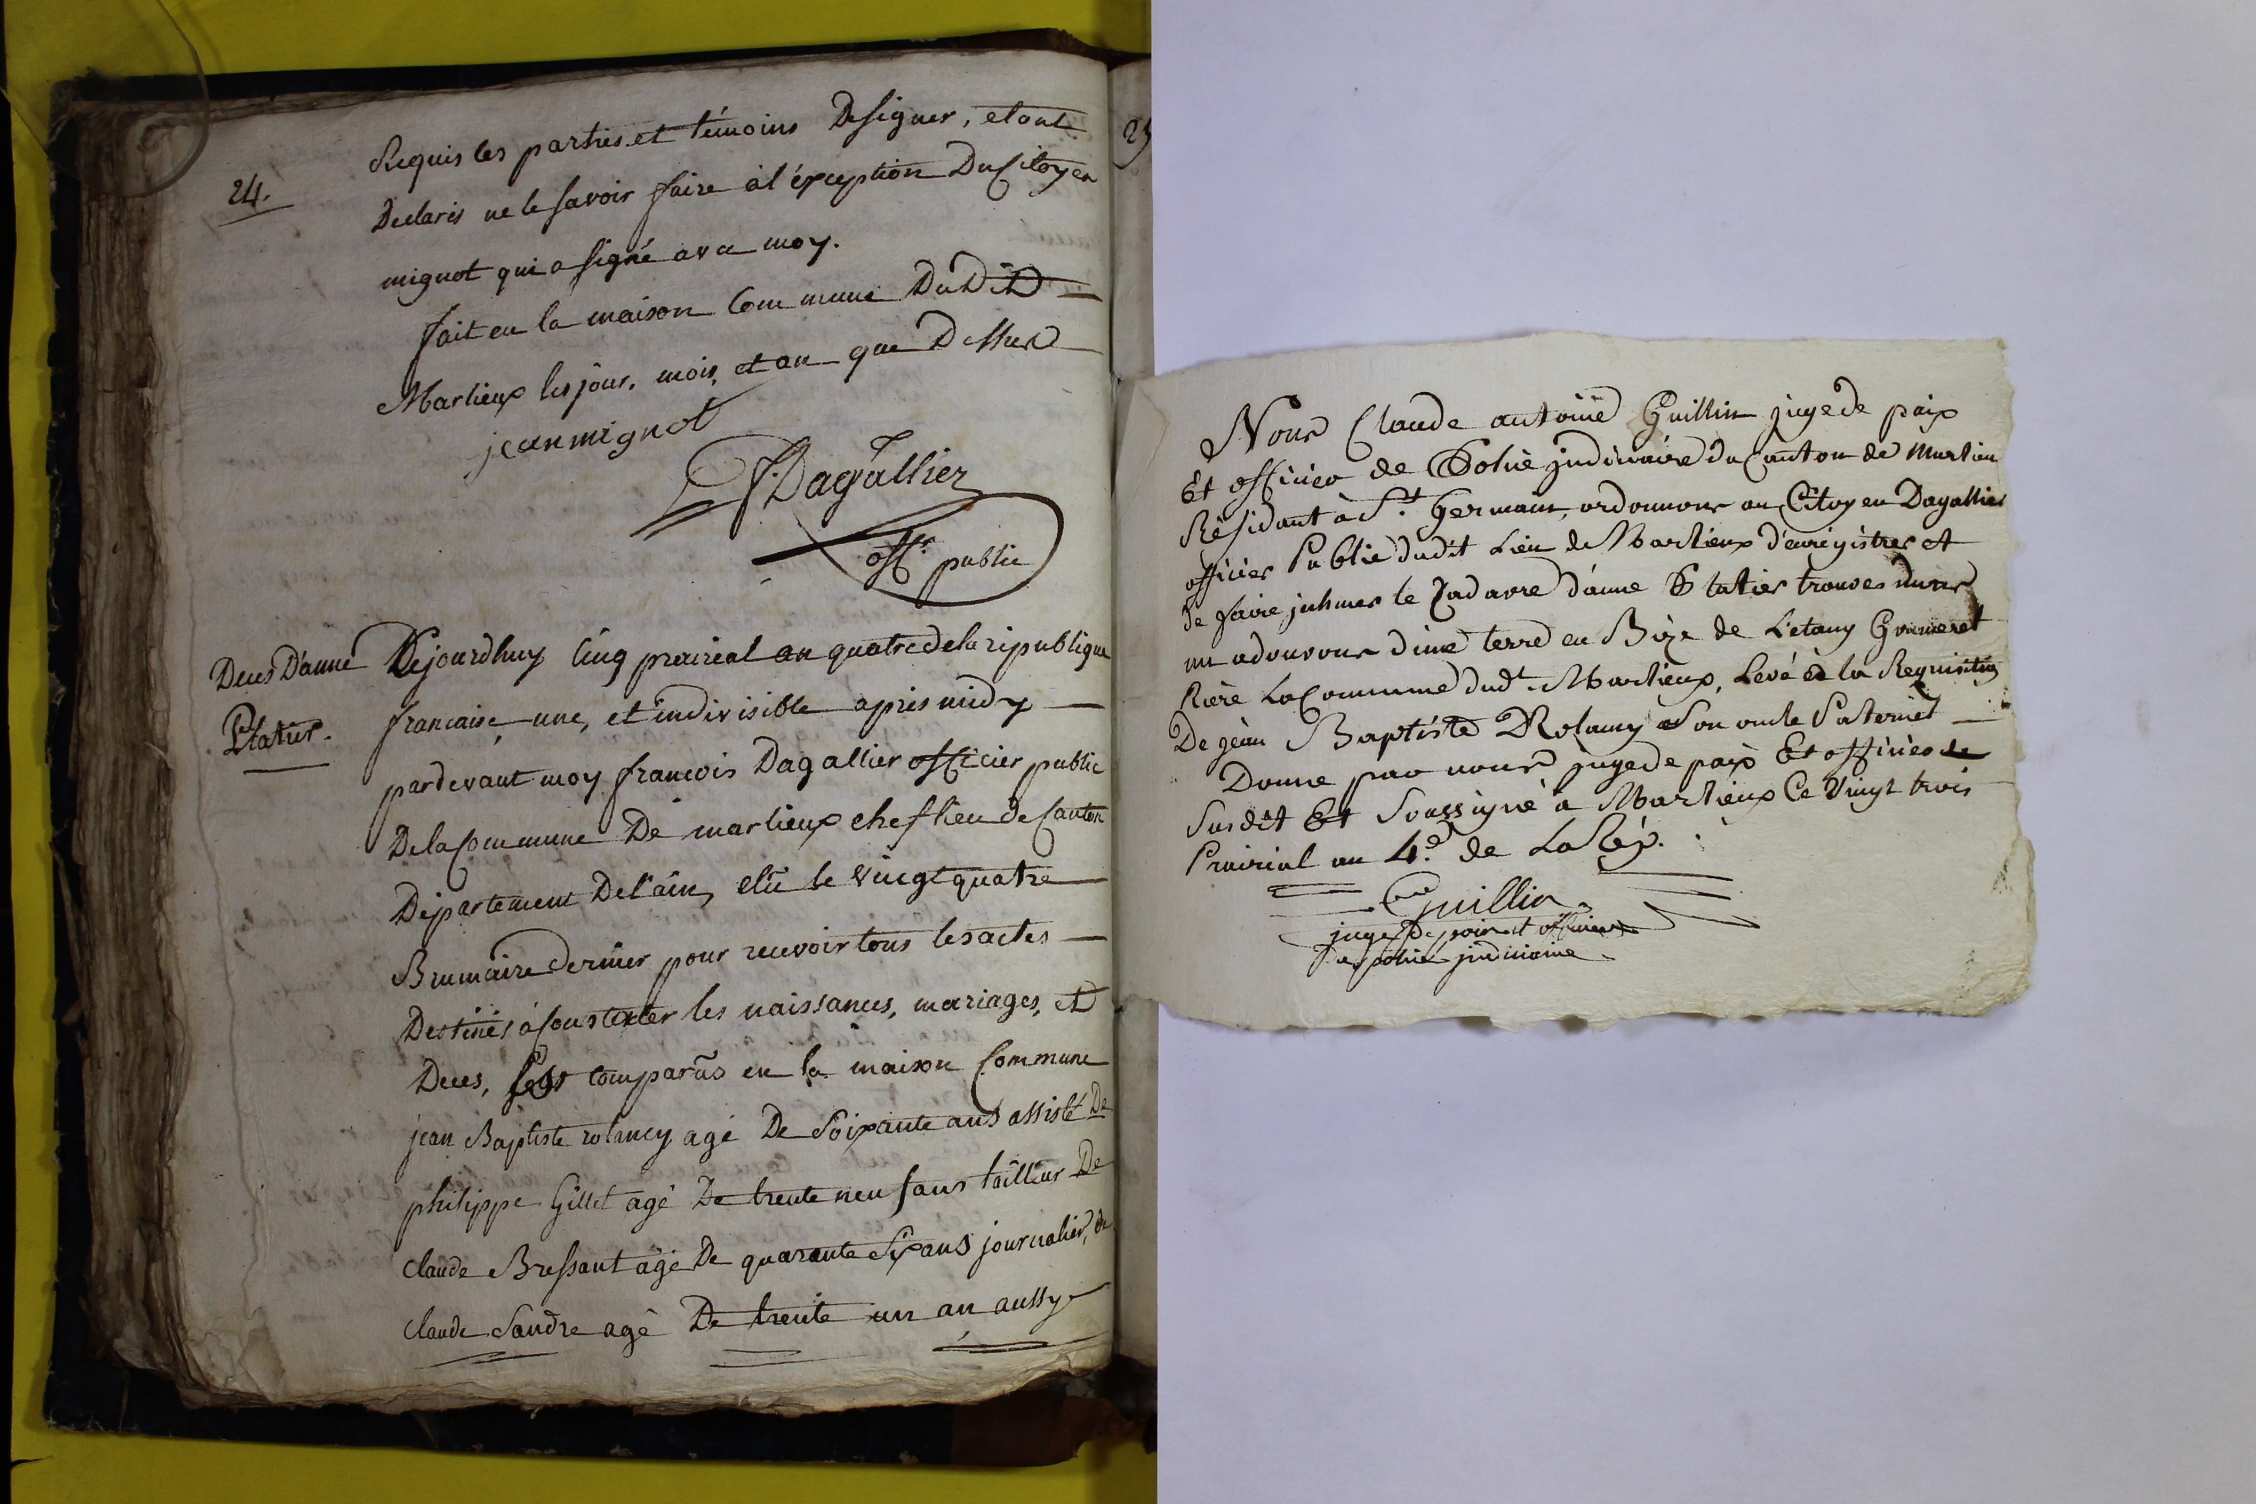 24.
Requis les parties et témoins Designer, etant
Declarés ne le savoir faire à l'éxception Du Citoyen
mignot qui a signé avec moy.
fait en la maison Commune Dudit
Marlieux les jour, mois, et an que Dessus
jean mignot
F. Dagallier
offr. public
25
Deces D'anne
Platier.
Dejourdhuy Cinq prairial an quatre de la république
francaise, une, et indivisible apres midy
pardevant moy francois Dagallier officier public
De la Commune De marlieux chef lieu de Canton
Département De l'ain, élu le vingt quatre
Brumaire dernier pour recevoir tous les actes
Destinés à Constater les naissances, mariages, et
Deces, sont comparus en la maison Commune
jean Baptiste rolancy agé De Soixante ans assisté De
philippe Gillet agé De trente neuf ans tailleur De
claude Bressant agé De quarante Six ans journalier, de
claude Sandre agé De trente un an aussy
Nous Claude antoine Guillin juge de paix
Et officier de Police judiciaire du Canton de Marlieu
Résidant à St. Germain, ordonnons au Citoyen Dagallier
officier Public dudit Lieu de Marlieux d'enregistrer et
de faire inhumer le Cadavre d'anne Platier trouvé
d'une terre en Bize de L'etang
Rière La Commune dudt. Marlieux, Levé à la Requisition
De jean Baptiste Rolancy Son oncle Paternel
Donné par nous juge de paix Et officier
Susdit Et Soussigné a Marlieux Ce Vingt trois
Prairial an 4.e de La Rép.
Guillin
juge De paix et officier
De police judiciaire